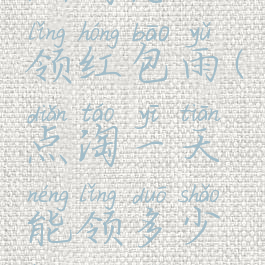 lǐng hóng bāo yǔ
领红包雨(
diǎn táo yī tiān
点淘一天
néng lǐng duō shǎo
能领多少